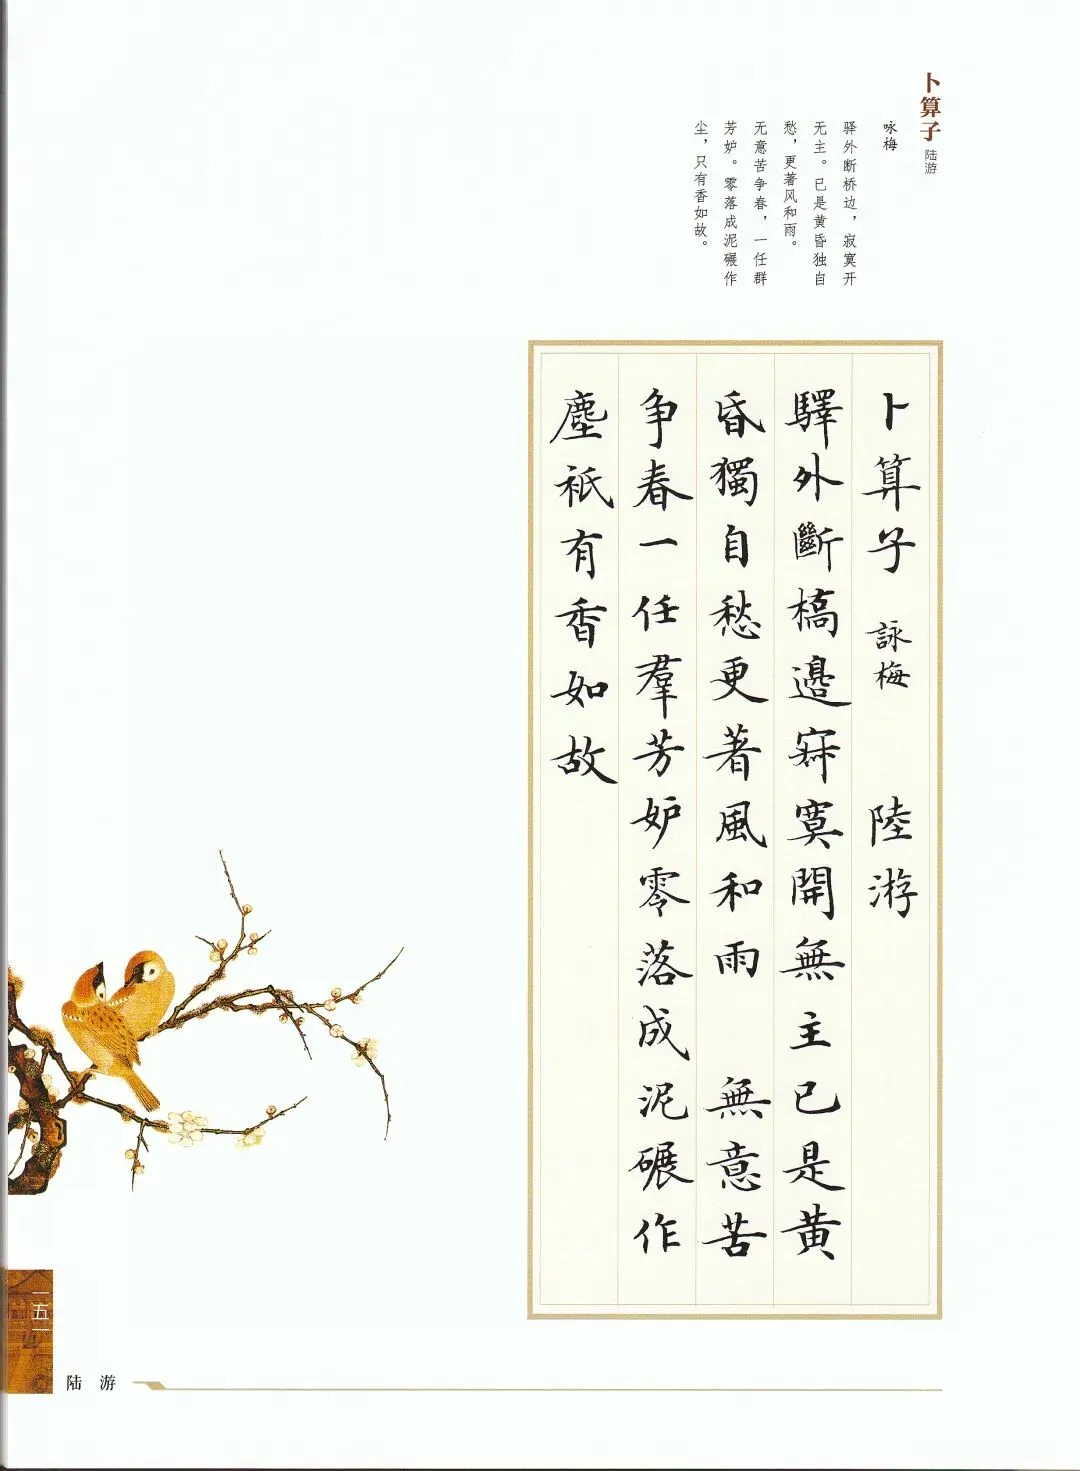 卜算子 陆游
咏梅
驿外断桥边，寂寞开
无主。已是黄昏独自
愁，更著风和雨。
无意苦争春，一任群
芳妒。零落成泥碾作
尘，只有香如故。
卜算子 詠梅 陸游
驛外斷橋邊寂寞開無主已是黄
昏獨自愁更著風和雨 無意苦
争春一任羣芳妒零落成泥碾作
塵祇有香如故
一五一
陆游